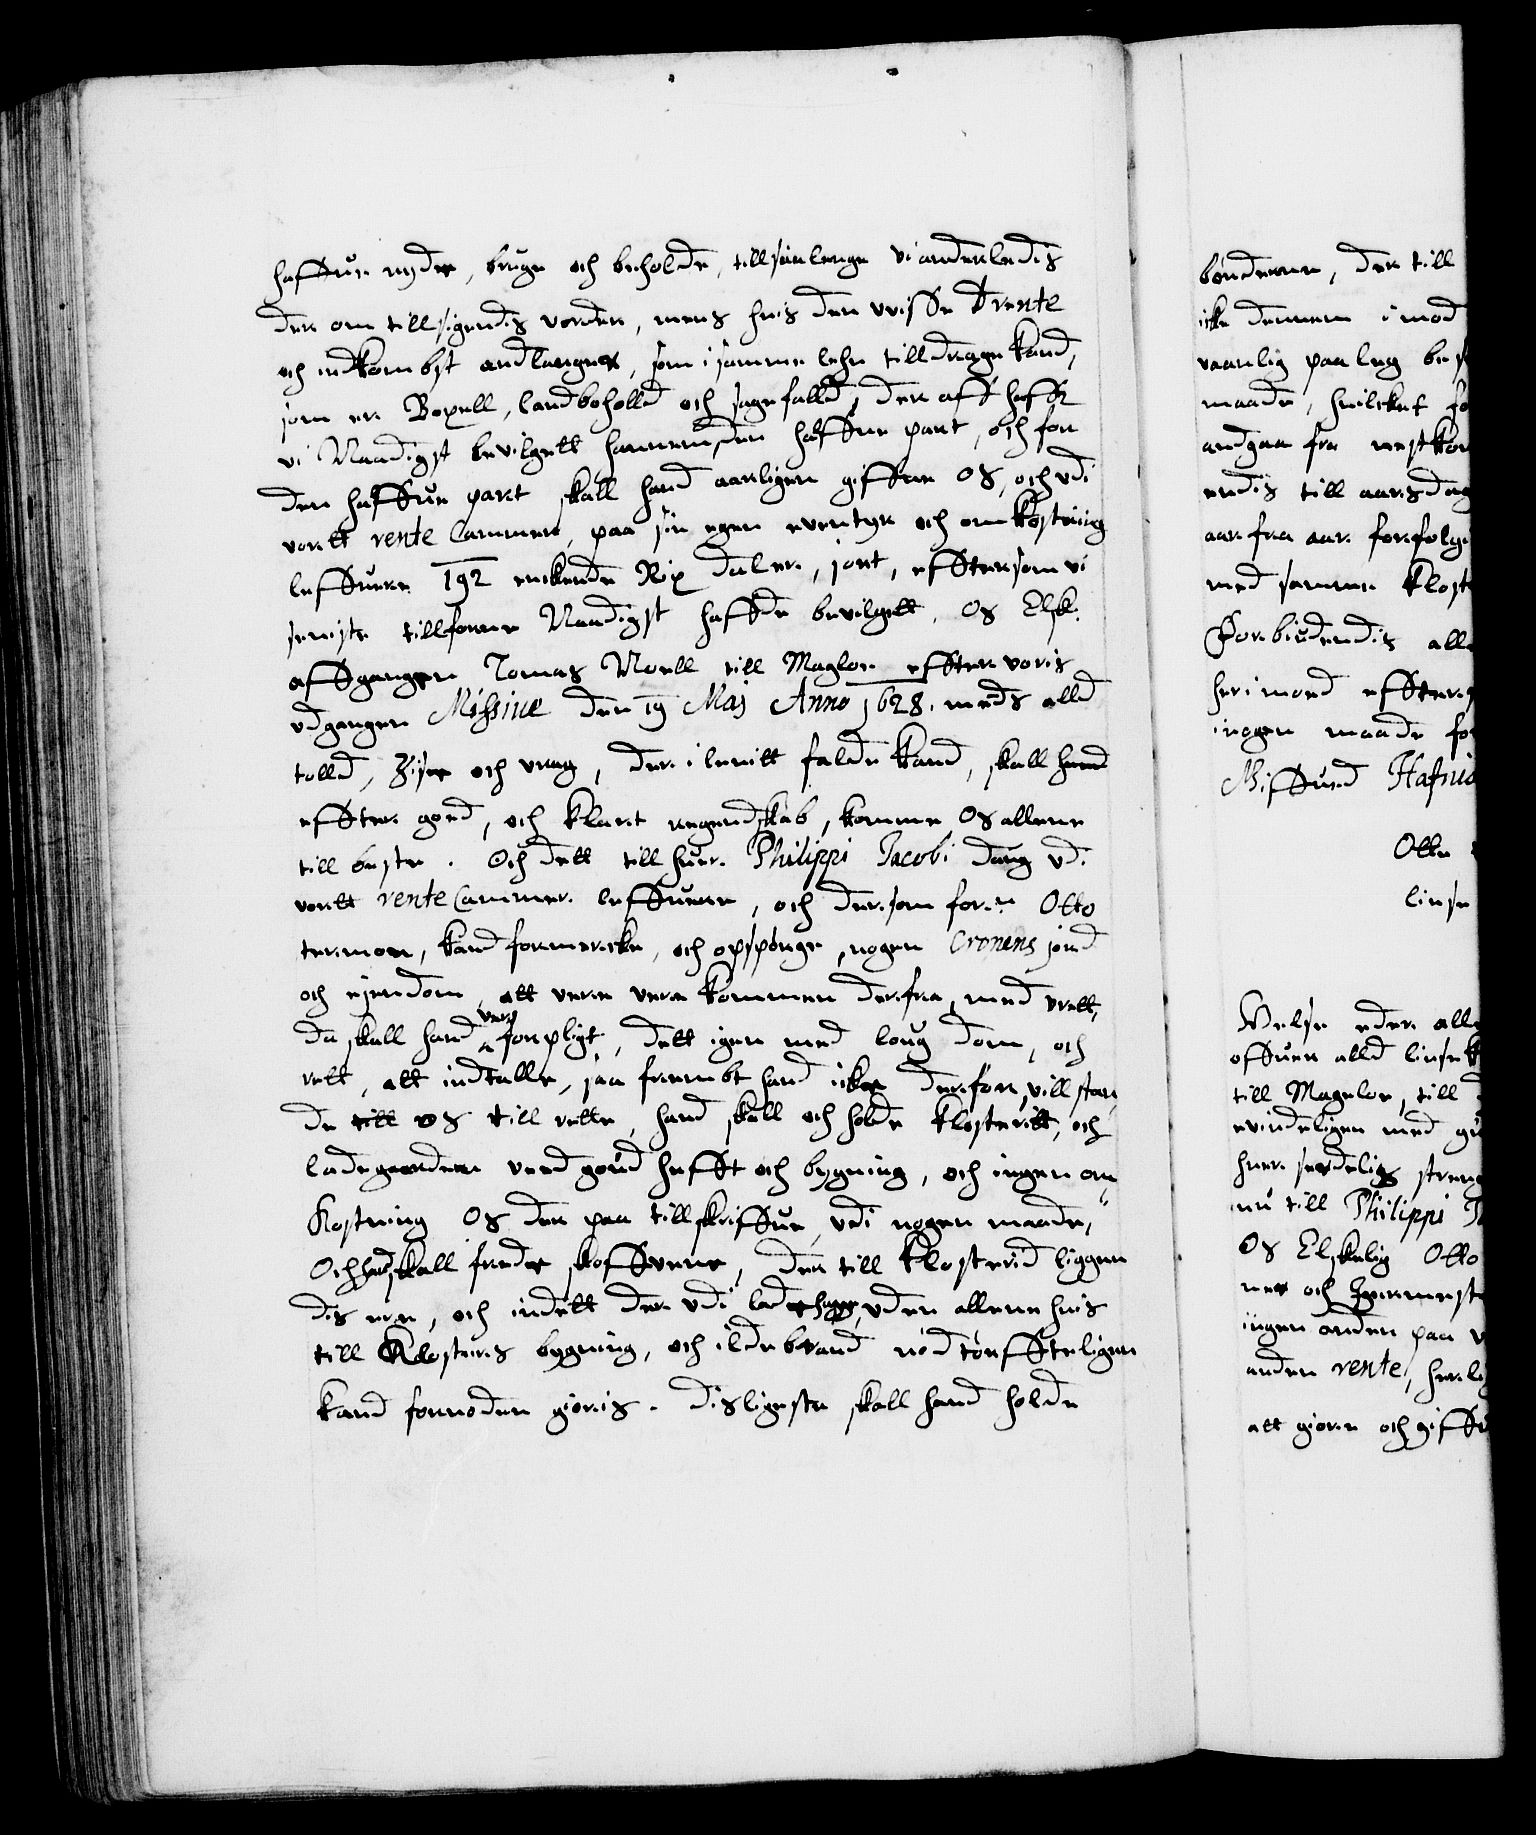 haffue, nyde, bruge och beholde, till saalenge vi anderledis
der om till sigendis vorder, mens huis den uvisse Rente
och indkombst andlanger, som i samme lehn till drage kand,
som er Boxell, landboholld och sagefalld, der aff haffr
vi Naadigst bevilgett hannem den halffue part, och for
den halffue part skall hand aarligen giffue OS, och udi
vortt rente Cammer, paa sin egen eventyr och omkostning
leffuere 192 enckende Rix daler, jort, efftersom vi
seniste tillforne Naadigst haffde bevilgett, OS Elsk.
affgangen Tomas Noell till Magloe effter voris
udgangen Missiue den 19 Maj Anno 1628. meds alld
tolld, Zise och vrag, der i lenitt falde kand, skall hand
effter goed, och klart regendskab, komme OS allene
till beste. Och dett till huer Philippi Jacobi daug udi
vortt rente Cammer leffuere, och dersom for.ne Otto
termoen, kand formercke, och opspørge, nogen Cronens jord
och ejendom, att vere vere kommen derfra, med urett,
da skall hand were forpligt, dett igen med loug dom, och
rett, att indtalle, saa frembt hand icke derfor, vill stan,
de till OS till rette, hand skall och holde Klosteritt, och
ladegaarden ved goud hefft och bygning, och ingen om
Kostning OS der paa till skriffue, udi nogen maade,
Och hand skall frede skoffuene, der till Klosterid liggen
dis ere, och indett der udi lade hugge, uden allene huis
till Klosters bygning, och ildebrand nødtørffteligen
kand fornøden giøris. Disligeste skall hand holde
bønderne, der till
icke dennem imod
vaanlig paaleg bes
maade, huilcket fo
andgaa fra nestkom
endis till aarsdag
aar fra aar forfølge
med samme Kloste
Forbiudendis alle
her imoed effter
i nogen maade fo
Hiffued Hafnia
Otte
linse
Velse eder alle
offuer alld linse k
till Mageloe, till
evindeligen med gu
huer serdelis streng
nu till Philippi J
OS Elskelig Otto
ner och Zeermeste
ingen anden paa v
anden rente, herlig
att giøre och giffue